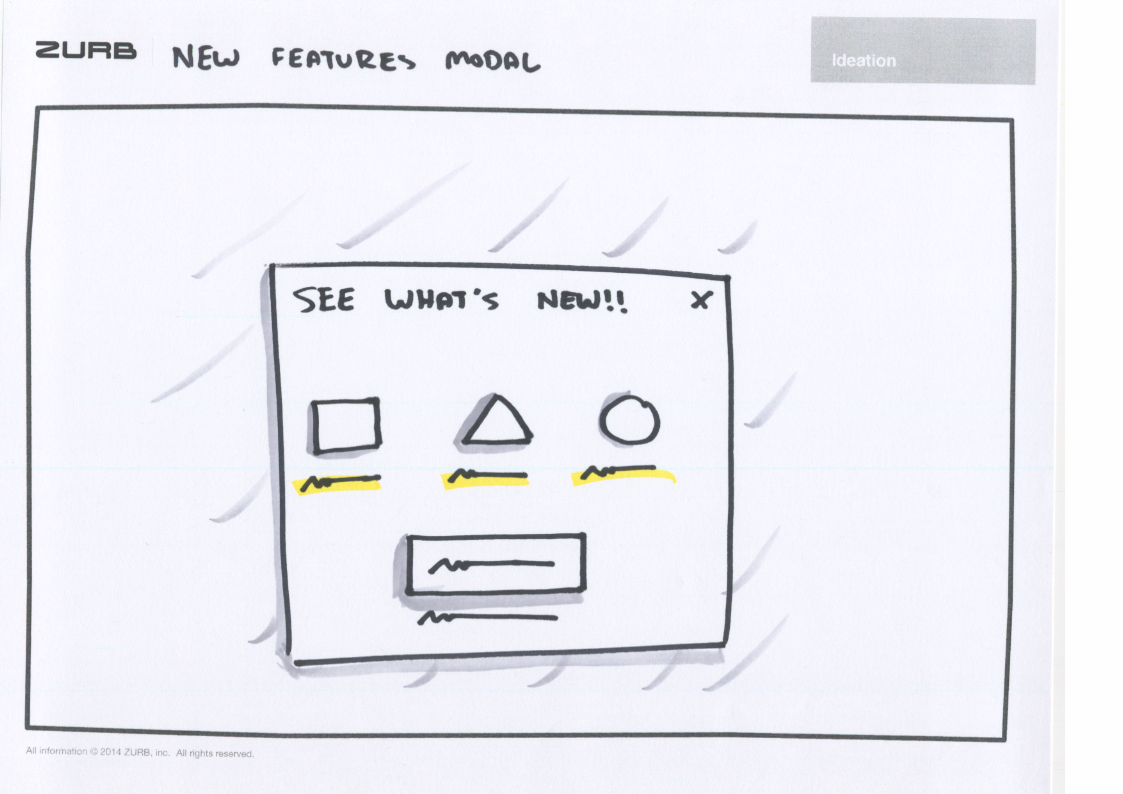 ZURB NEW FEATURES MODAL
Ideation
SEE WHAT'S NEW!! X
All information © 2014 ZURB, inc. All rights reserved.